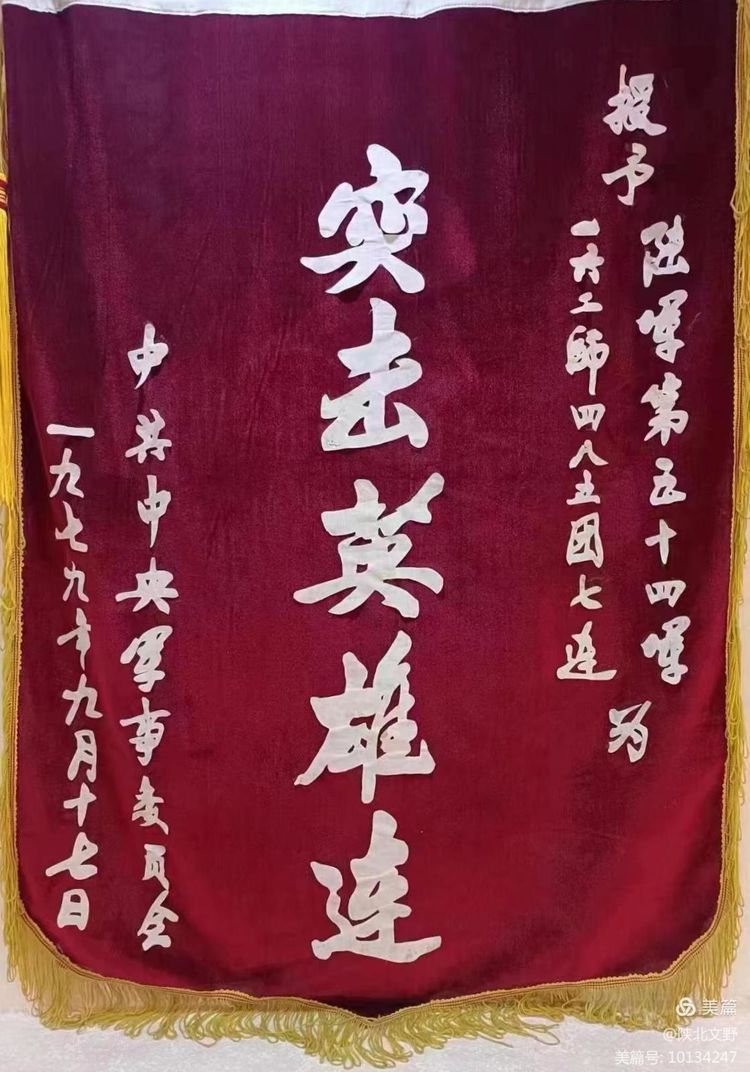 授予
陆军第五十四军
一六二师四八五团七连
为
突击英雄连
中共中央军事委员会
一九七九年九月十七日
美篇
@陕北文野
美篇号: 10134247